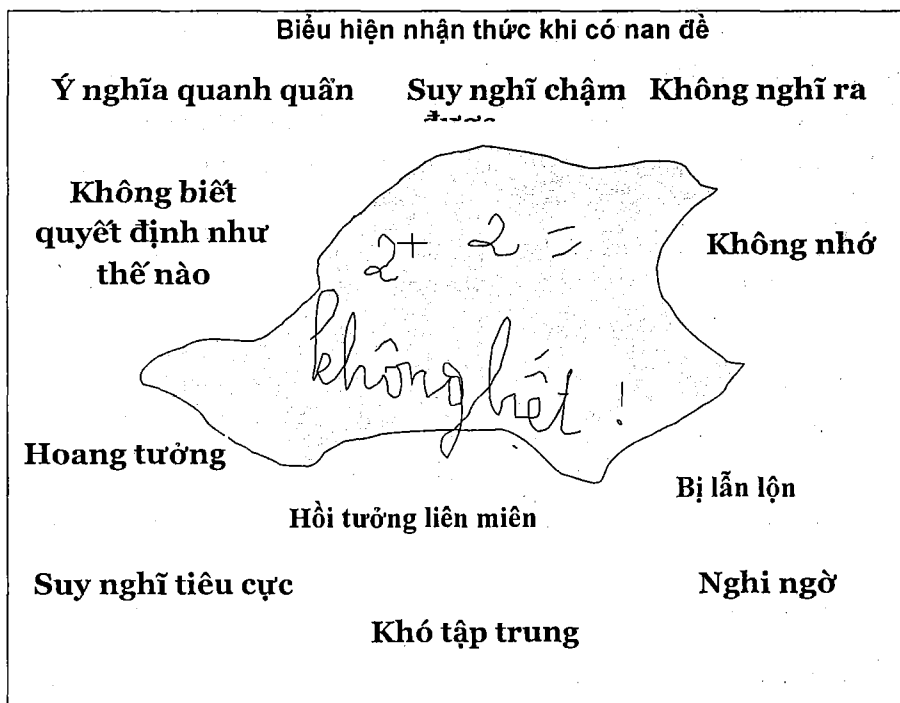 Biểu hiện nhận thức khi có nan đề
Ý nghĩa quanh quẩn Suy nghĩ chậm Không nghĩ ra
được
Không biết
quyết định như
thế nào
Không nhớ
2+ 2 =
không biết !
Hoang tưởng
Bị lẫn lộn
Hồi tưởng liên miên
Suy nghĩ tiêu cực
Nghi ngờ
Khó tập trung